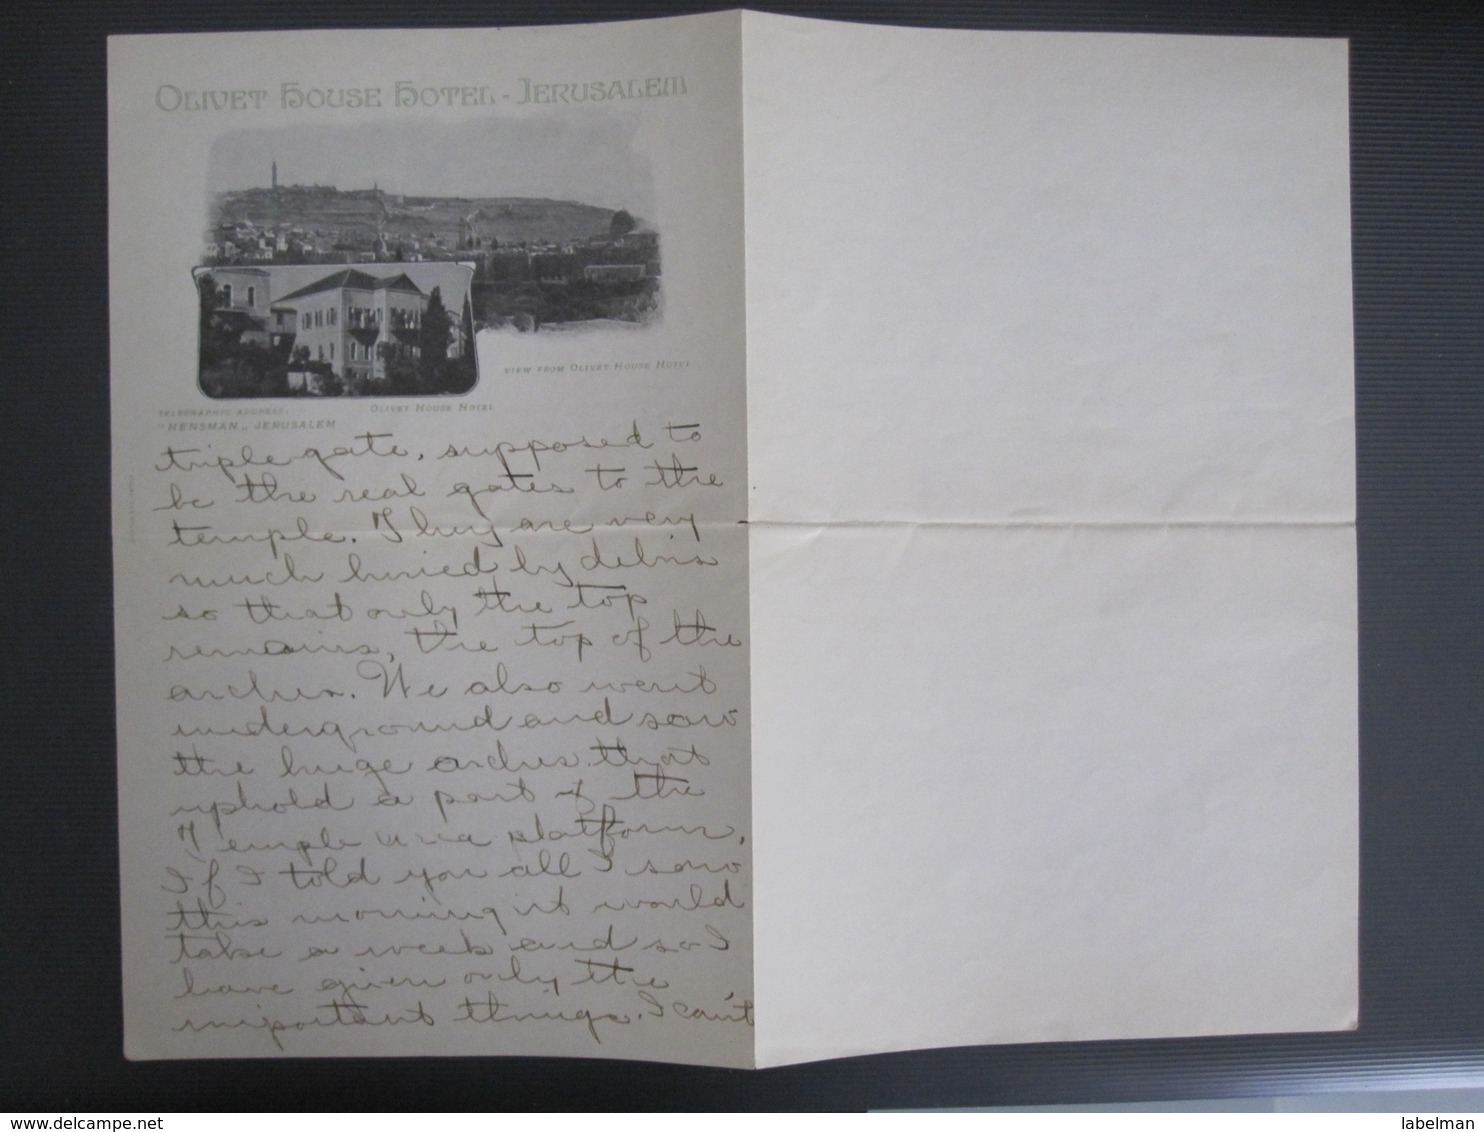 OLIVET HOUSE HOTEL - JERUSALEM
VIEW FROM OLIVET HOUSE HOTEL
OLIVET HOUSE HOTEL
TELEGRAPHIC ADDRESS:
"HENSMAN„ JERUSALEM
triple gate, supposed to
be the real gates to the
temple. They are very
much buried by debris
so that only the top
remains, the top of the
arches. We also went
underground and saw
the huge arches that
uphold a part of the
Temple area platform.
If I told you all I saw
this morning it would
take a week and so I
have given only the
important things. I can't
delcampe.net
labelman